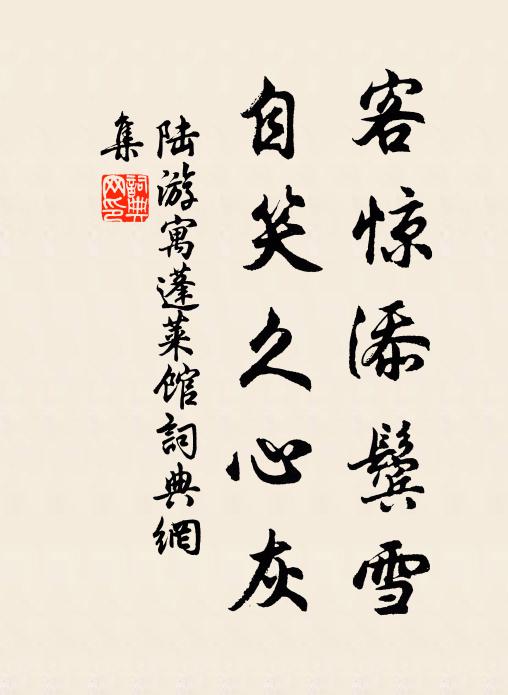 客惊添鬓雪
自笑久心灰
陆游寓蓬莱馆词典網
集
詞典網印